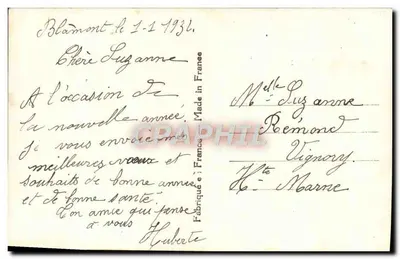 Blâmont le 1-1 1934.
Chère Suzanne
A l'occasion de
la nouvelle année
je vous envoie mes
meilleures vœux et
souhaits de bonne année
et de bonne santé.
Ton amie qui pense
à vous
Huberte
Fabriqué en France Made in France
Melle Suzanne
Rémond
Vignory
Hte Marne